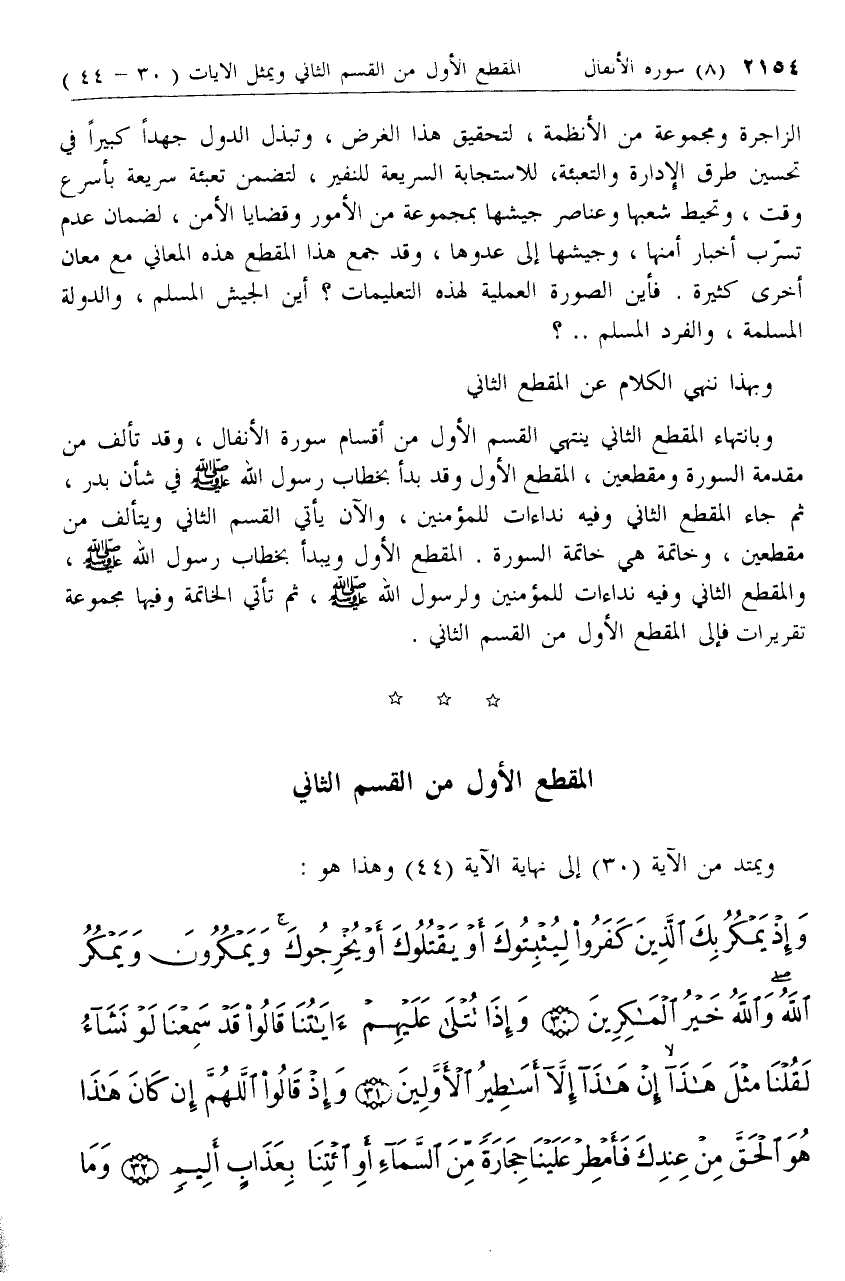 ٢١٥٤ (٨) سوره الأنفال المقطع الأول من القسم الثاني ويمثل الايات ( ٣٠ – ٤٤ )
الزاجرة ومجموعة من الأنظمة ، لتحقيق هذا الغرض ، وتبذل الدول جهداً كبيراً في
تحسين طرق الإدارة والتعبئة، للاستجابة السريعة للنفير ، لتضمن تعبئة سريعة بأسرع
وقت ، وتحيط شعبها وعناصر جيشها بمجموعة من الأمور وقضايا الأمن ، لضمان عدم
تسرّب أخبار أمنها ، وجيشها إلى عدوها ، وقد جمع هذا المقطع هذه المعاني مع معان
أخرى كثيرة . فأين الصورة العملية لهذه التعليمات ؟ أين الجيش المسلم ، والدولة
المسلمة ، والفرد المسلم .. ؟
وبهذا ننهي الكلام عن المقطع الثاني
وبانتهاء المقطع الثاني ينتهي القسم الأول من أقسام سورة الأنفال ، وقد تألف من
مقدمة السورة ومقطعين ، المقطع الأول وقد بدأ بخطاب رسول الله ﷺ في شأن بدر ،
ثم جاء المقطع الثاني وفيه نداءات للمؤمنين ، والآن يأتي القسم الثاني ويتألف من
مقطعين ، وخاتمة هي خاتمة السورة . المقطع الأول ويبدأ بخطاب رسول الله ﷺ ،
والمقطع الثاني وفيه نداءات للمؤمنين ولرسول الله ﷺ ، ثم تأتي الخاتمة وفيها مجموعة
تقريرات فإلى المقطع الأول من القسم الثاني .
☆ ☆ ☆
المقطع الأول من القسم الثاني
ويمتد من الآية (٣٠) إلى نهاية الآية (٤٤) وهذا هو :
وَإِذْ يَمْكُرُ بِكَ ٱلَّذِينَ كَفَرُوا۟ لِيُثْبِتُوكَ أَوْ يَقْتُلُوكَ أَوْ يُخْرِجُوكَ ۚ وَيَمْكُرُونَ وَيَمْكُرُ
ٱللَّهُ ۖ وَٱللَّهُ خَيْرُ ٱلْمَـٰكِرِينَ ﴿٣٠﴾ وَإِذَا تُتْلَىٰ عَلَيْهِمْ ءَايَـٰتُنَا قَالُوا۟ قَدْ سَمِعْنَا لَوْ نَشَآءُ
لَقُلْنَا مِثْلَ هَـٰذَآ ۙ إِنْ هَـٰذَآ إِلَّآ أَسَـٰطِيرُ ٱلْأَوَّلِينَ ﴿٣١﴾ وَإِذْ قَالُوا۟ ٱللَّهُمَّ إِن كَانَ هَـٰذَا
هُوَ ٱلْحَقَّ مِنْ عِندِكَ فَأَمْطِرْ عَلَيْنَا حِجَارَةً مِّنَ ٱلسَّمَآءِ أَوِ ٱئْتِنَا بِعَذَابٍ أَلِيمٍ ﴿٣٢﴾ وَمَا